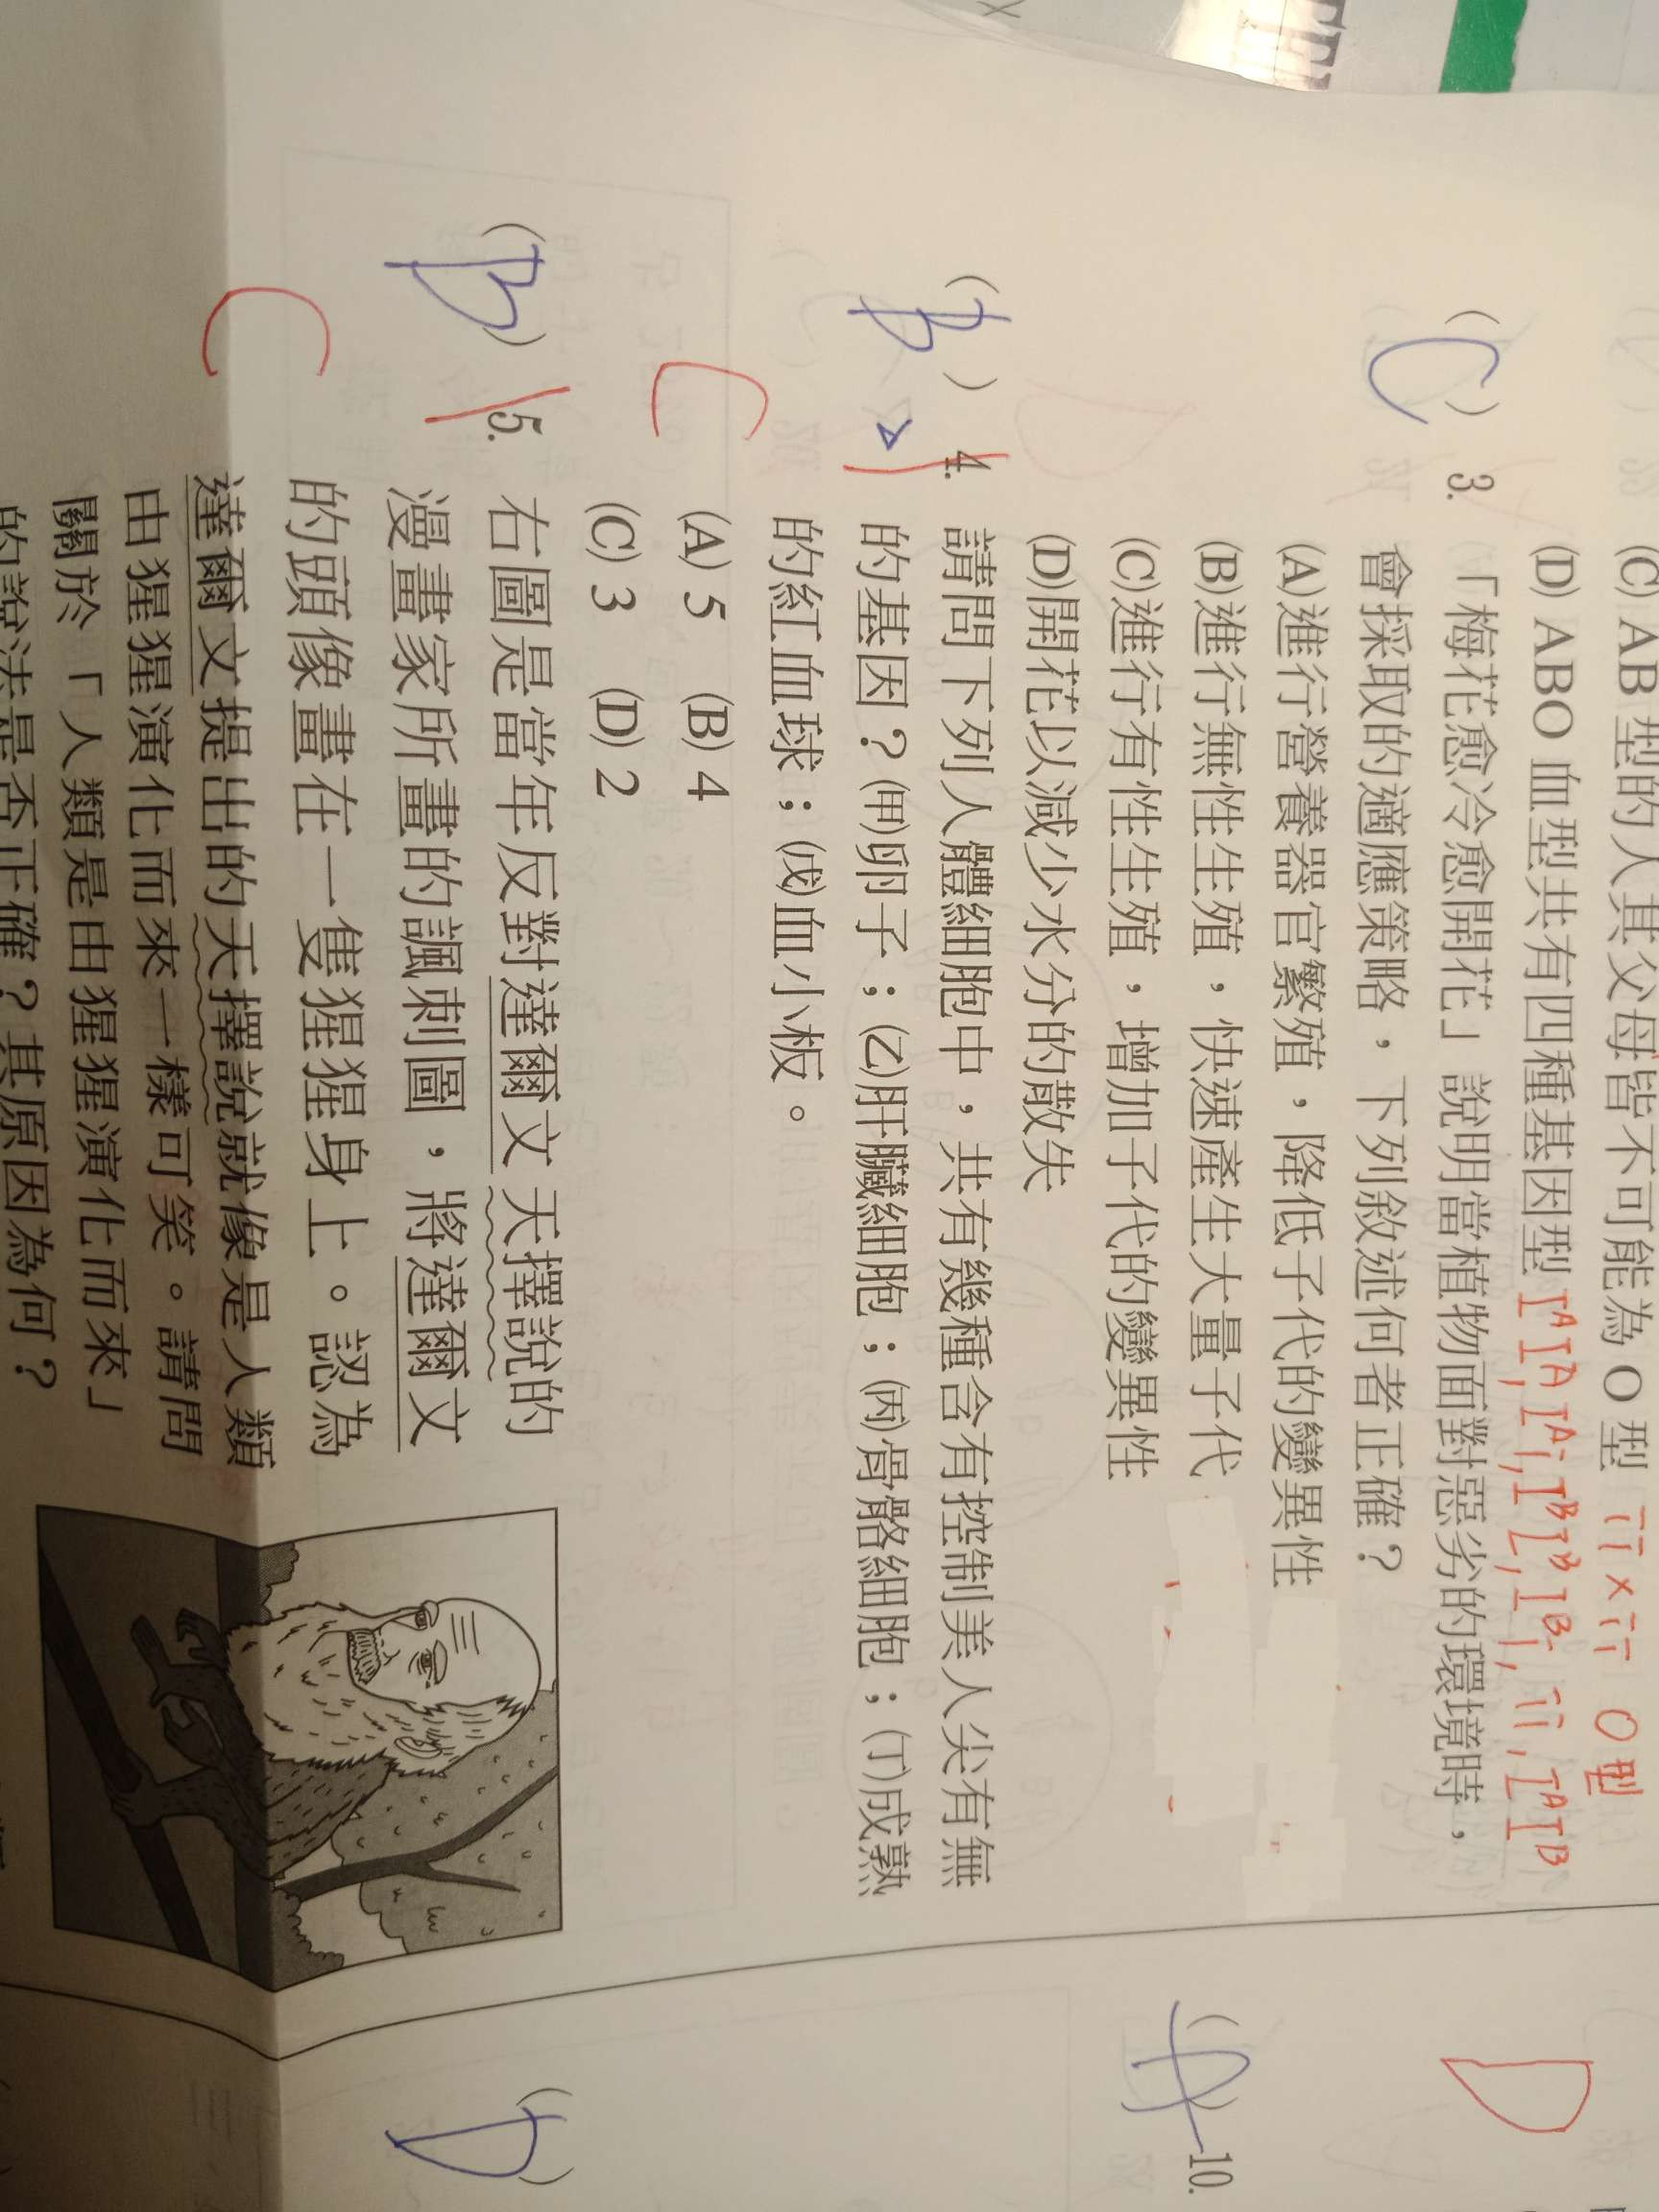 (C) AB 型的人其父母皆不可能為 O 型 ii×ii O型
(D) ABO 血型共有四種基因型 IAIA, IAi, IBIB, IBi, ii, IAIB
(C) 3. 「梅花愈冷愈開花」說明當植物面對惡劣的環境時，
會採取的適應策略，下列敘述何者正確？
(A)進行營養器官繁殖，降低子代的變異性
(B)進行無性生殖，快速產生大量子代
(C)進行有性生殖，增加子代的變異性
(D)開花以減少水分的散失
(B) 4. 請問下列人體細胞中，共有幾種含有控制美人尖有無
C
的基因？(甲)卵子；(乙)肝臟細胞；(丙)骨骼細胞；(丁)成熟
的紅血球；(戊)血小板。
(A) 5 (B) 4
(C) 3 (D) 2
(B) 5. 右圖是當年反對達爾文天擇說的
C
漫畫家所畫的諷刺圖，將達爾文
的頭像畫在一隻猩猩身上。認為
達爾文提出的天擇說就像是人類
由猩猩演化而來一樣可笑。請問
關於「人類是由猩猩演化而來」
的說法是否正確？其原因為何？
D
10.
(D)